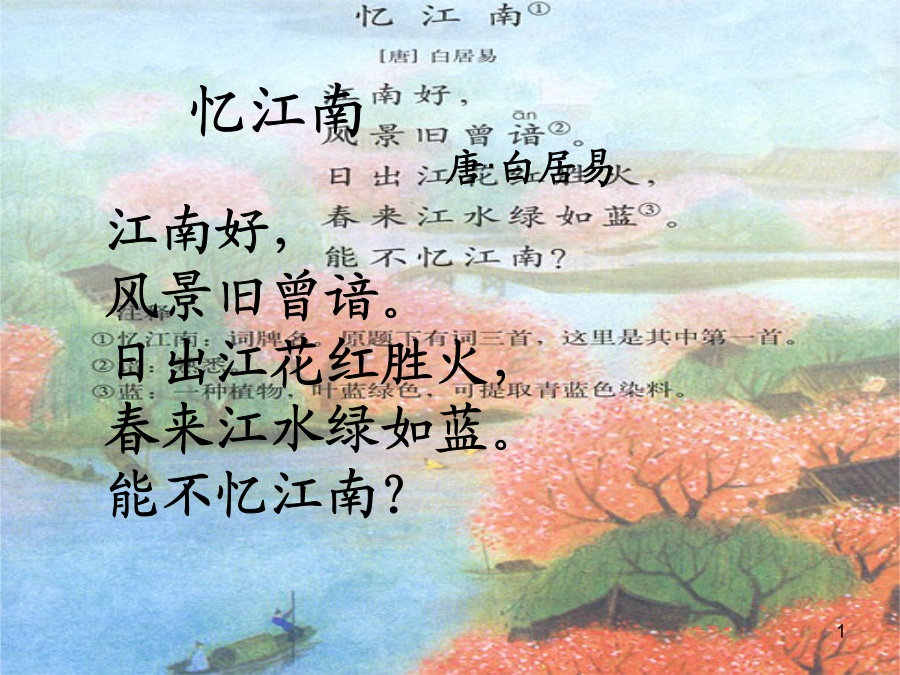 忆江南①
[唐]白居易
江南好，
ān
风景旧曾谙②。
日出江花红胜火，
春来江水绿如蓝③。
能不忆江南？
忆江南
唐·白居易
江南好，
风景旧曾谙。
日出江花红胜火，
春来江水绿如蓝。
能不忆江南？
注释
①忆江南：词牌名。原题下有词三首，这里是其中第一首。
②谙：熟悉
③蓝：一种植物，叶蓝绿色，可提取青蓝色染料。
1